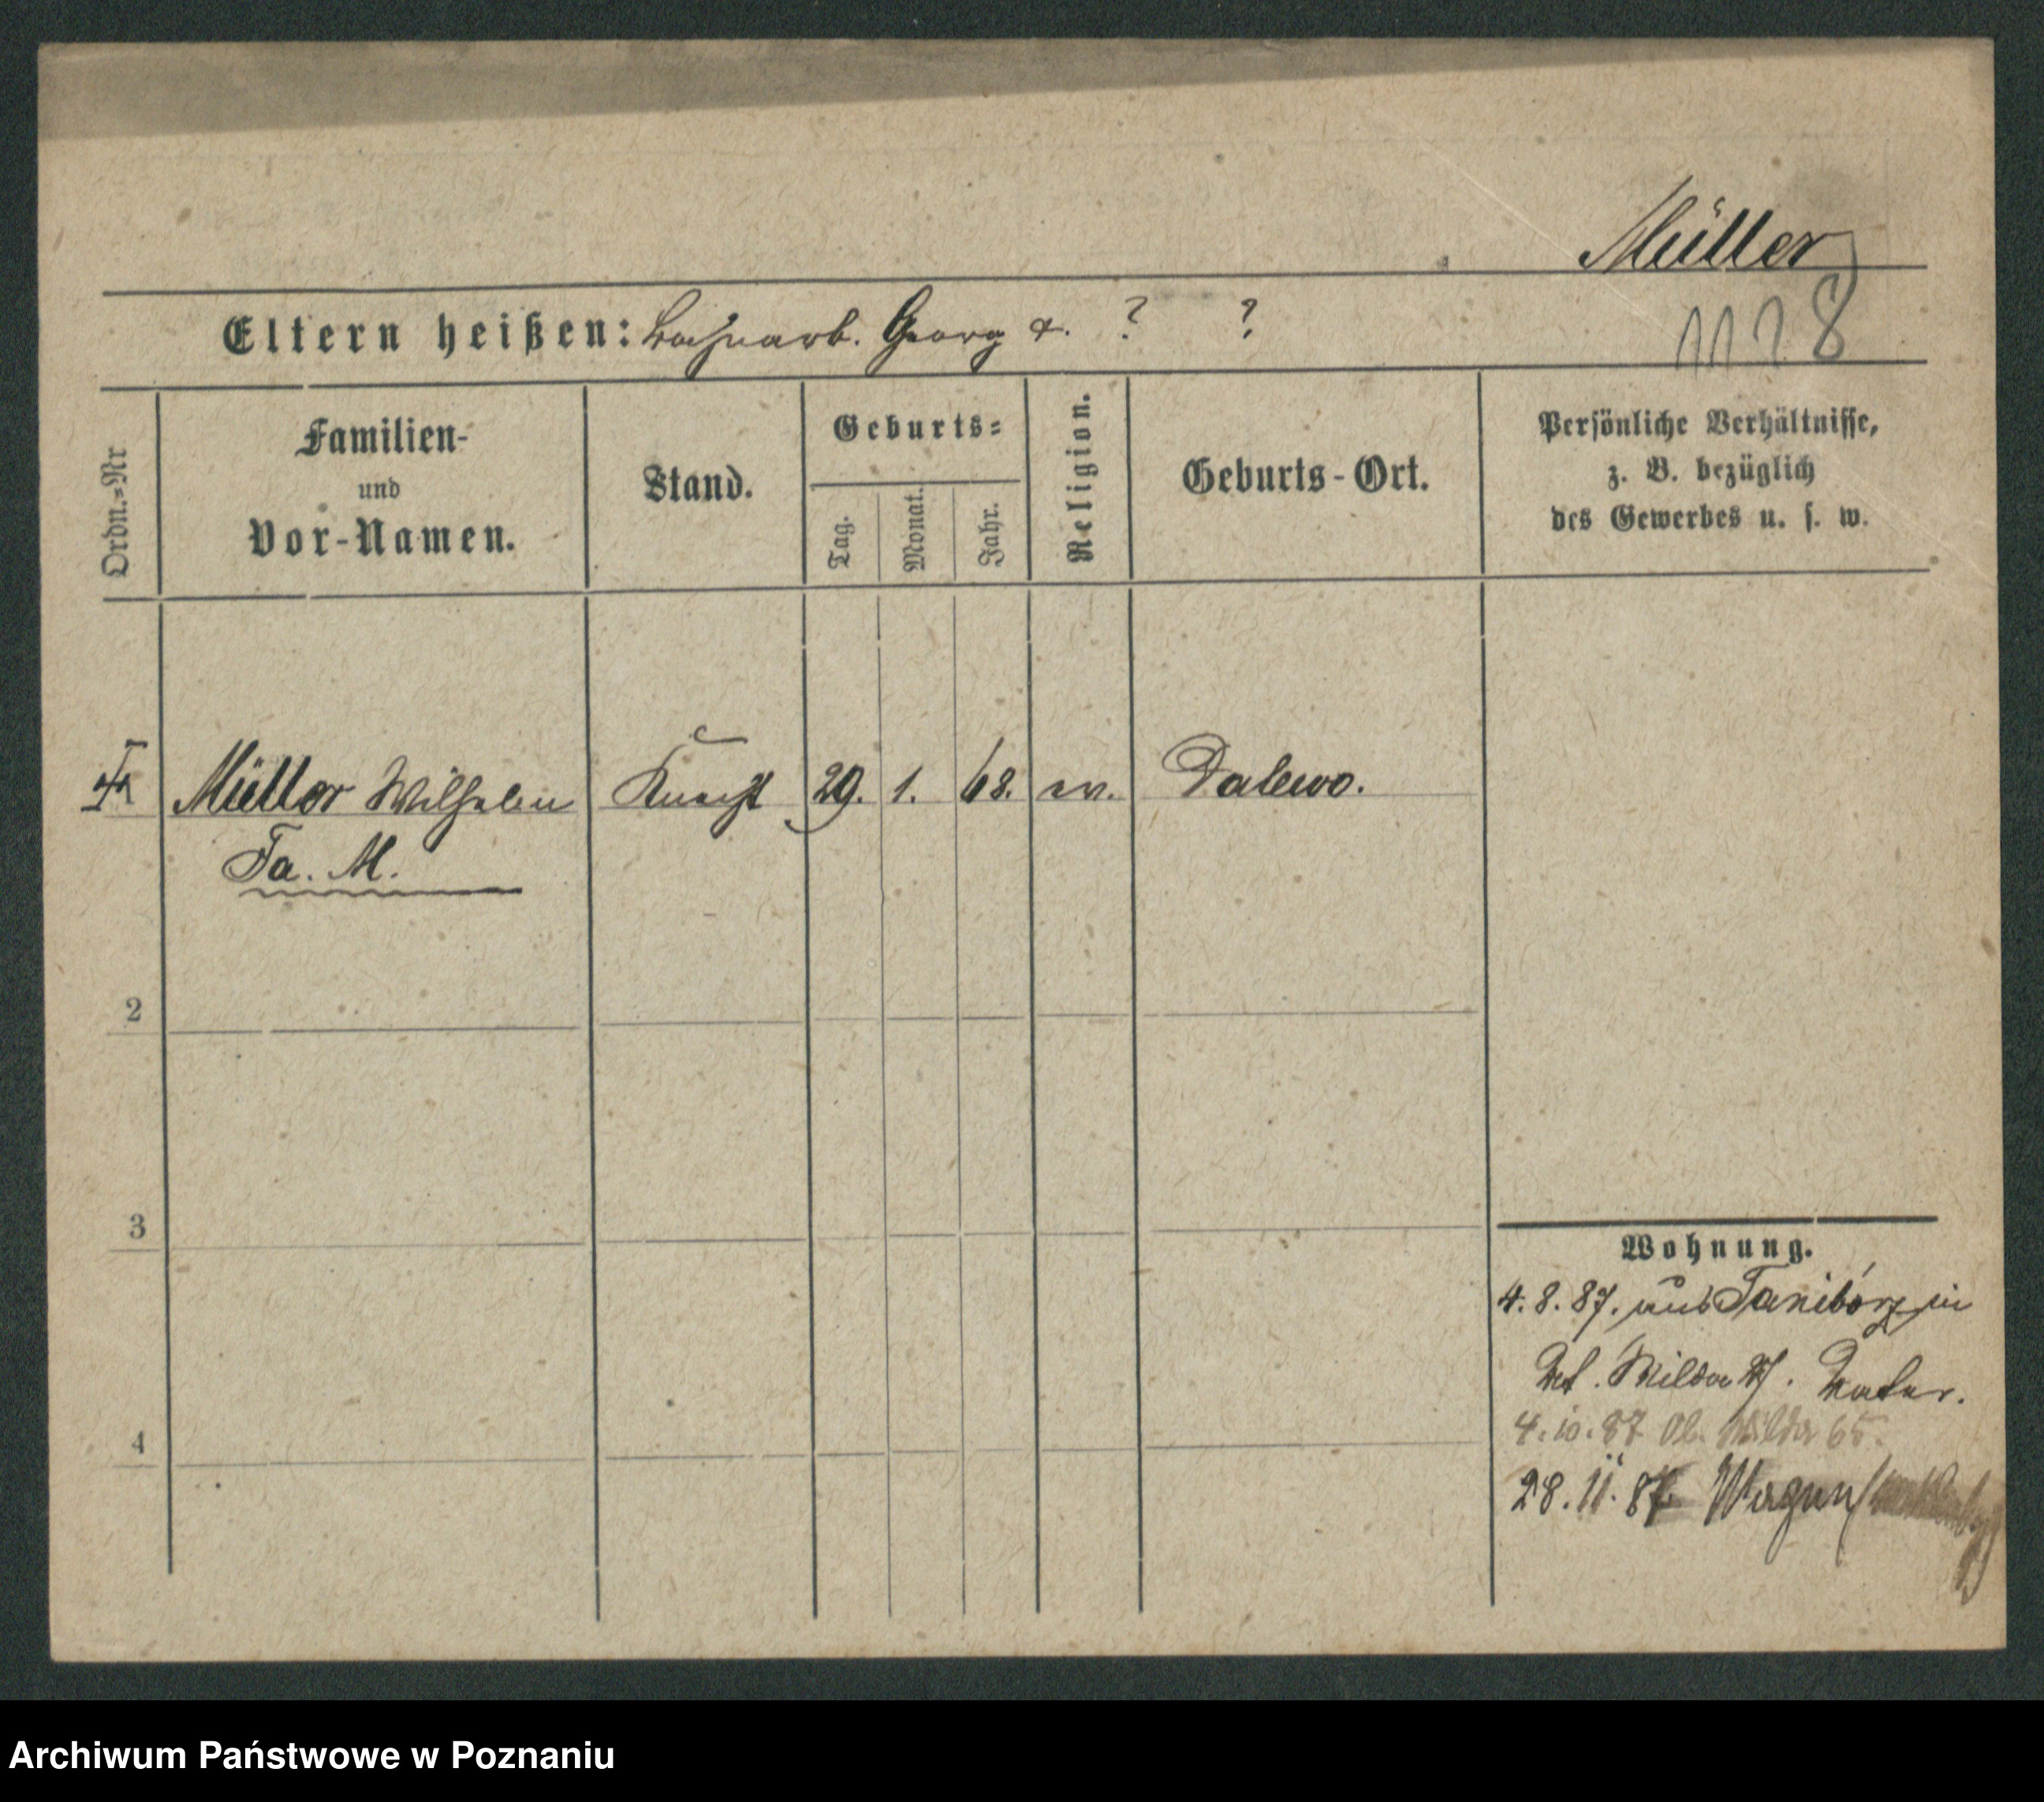 Müller
Eltern heißen: Bahnarb. Georg & ? ?
1128
Ordn.=Nr
Familien-
und
Vor-Namen.
Stand.
Geburts=
Tag.
Monat.
Jahr.
Religion.
Geburts-Ort.
Persönliche Verhältnisse,
z. B. bezüglich
des Gewerbes u. s. w.
Müller Wilhelm Knecht 29. 1. 68. ev. Dalewo.
Fa. M.
2
3
4
Wohnung.
4. 8. 87. aus Tanibórz in
Wilda
4. 10. 87 Ob. Wilda 65.
28. 11. 87
Archiwum Państwowe w Poznaniu